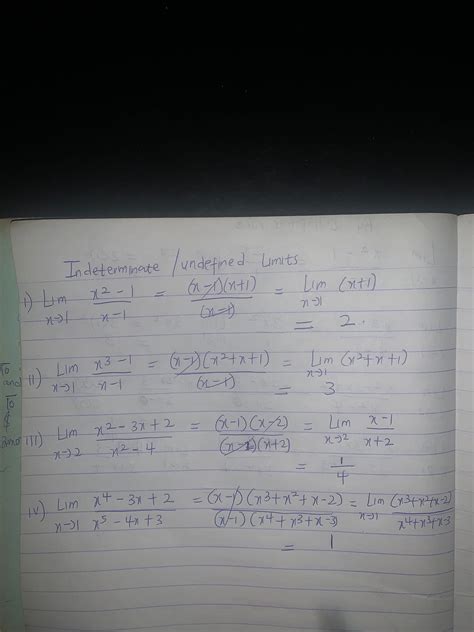 Indeterminate / undefined Limits
i) Lim x→1 x² - 1 / x - 1 = (x-1)(x+1) / (x-1) = Lim x→1 (x+1)
= 2.
ii) Lim x→1 x³ - 1 / x - 1 = (x-1)(x²+x+1) / (x-1) = Lim x→1 (x²+x+1)
= 3
iii) Lim x→2 x² - 3x + 2 / x² - 4 = (x-1)(x-2) / (x-2)(x+2) = Lim x→2 x-1 / x+2
= 1/4
iv) Lim x→1 x⁴ - 3x + 2 / x⁵ - 4x + 3 = (x-1)(x³+x²+x-2) / (x-1)(x⁴+x³+x-3) = Lim x→1 (x³+x²+x-2) / x⁴+x³+x-3
= 1